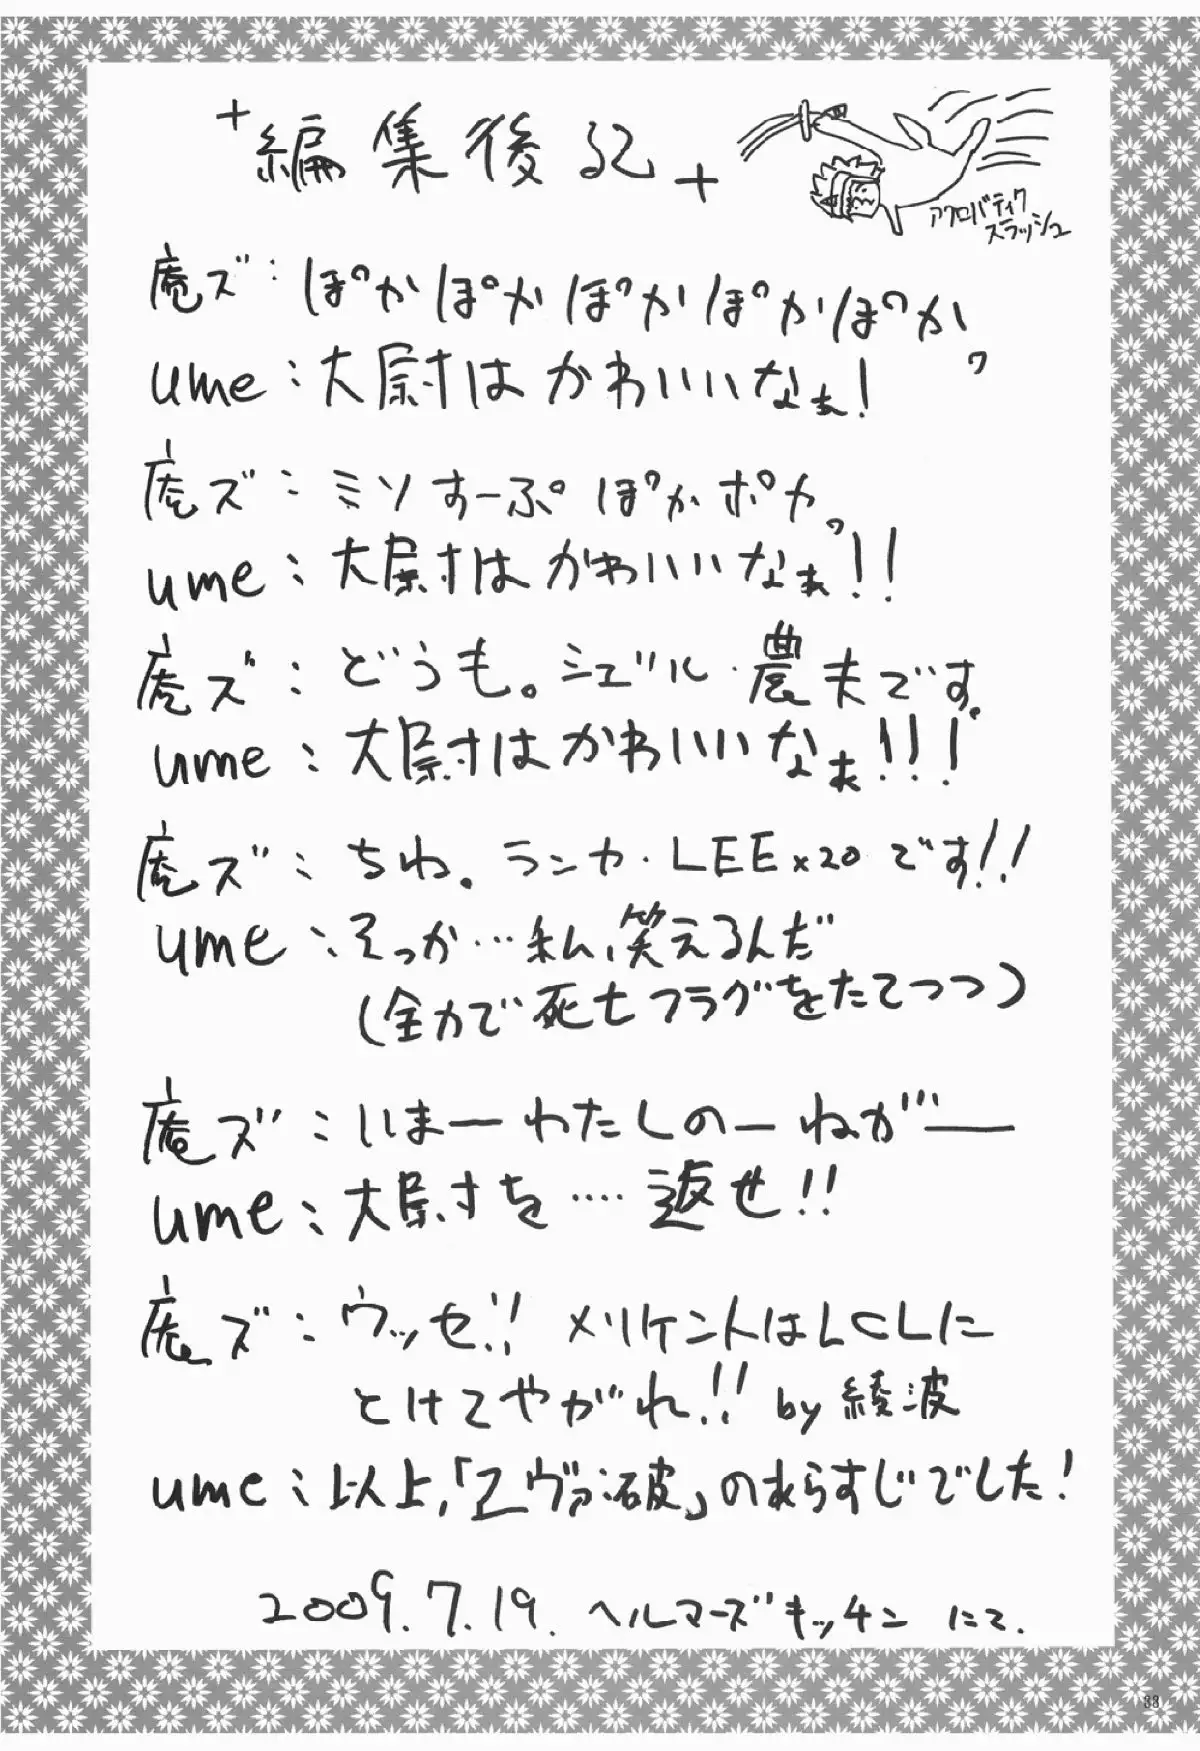 +編集後記+
アクロバティック
スラッシュ
庵ズ:ぽかぽかぽかぽかぽか。
ume:大尉はかわいいなぁ!
庵ズ:ミソすーぷぽかポカ。
ume:大尉はかわいいなぁ!!
庵ズ:どうも。シュゲル・農夫です。
ume:大尉はかわいいなぁ!!!
庵ズ:ちね。ランカ・LEE×20です!!
ume:そっか…私、笑えるんだ
(全力で死亡フラグをたてつつ)
庵ズ:いまーわたしのーねがーー
ume:大尉を….返せ!!
庵ズ:ウッセ!! メリケントはLCLに
とけてやがれ!! by 綾波
ume:以上、「ヱヴァ破」のあらすじでした!
2009.7.19. ヘルマーズキッチン にて.
33